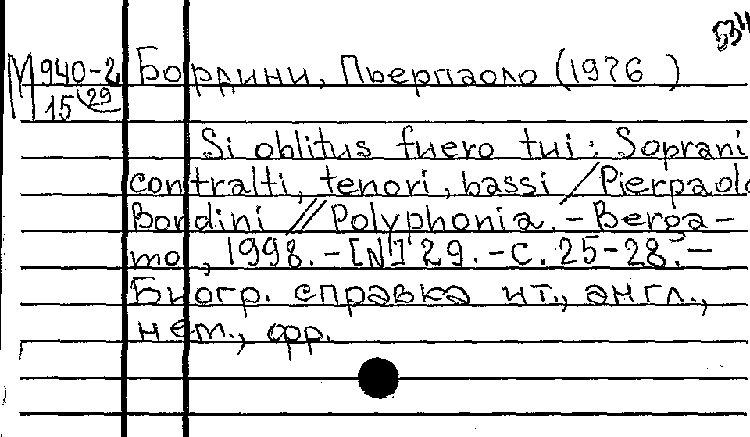 534
М 940-2 Бордини, Пьерпаоло (1976 )
15 29
Si oblitus fuero tui : Soprani
contralti, tenori, bassi / Pierpaolo
Bordini // Polyphonia. - Berga-
mo, 1998. - [N] 29. - С. 25-28. -
Биогр. справка ит., англ.,
нем., фр.